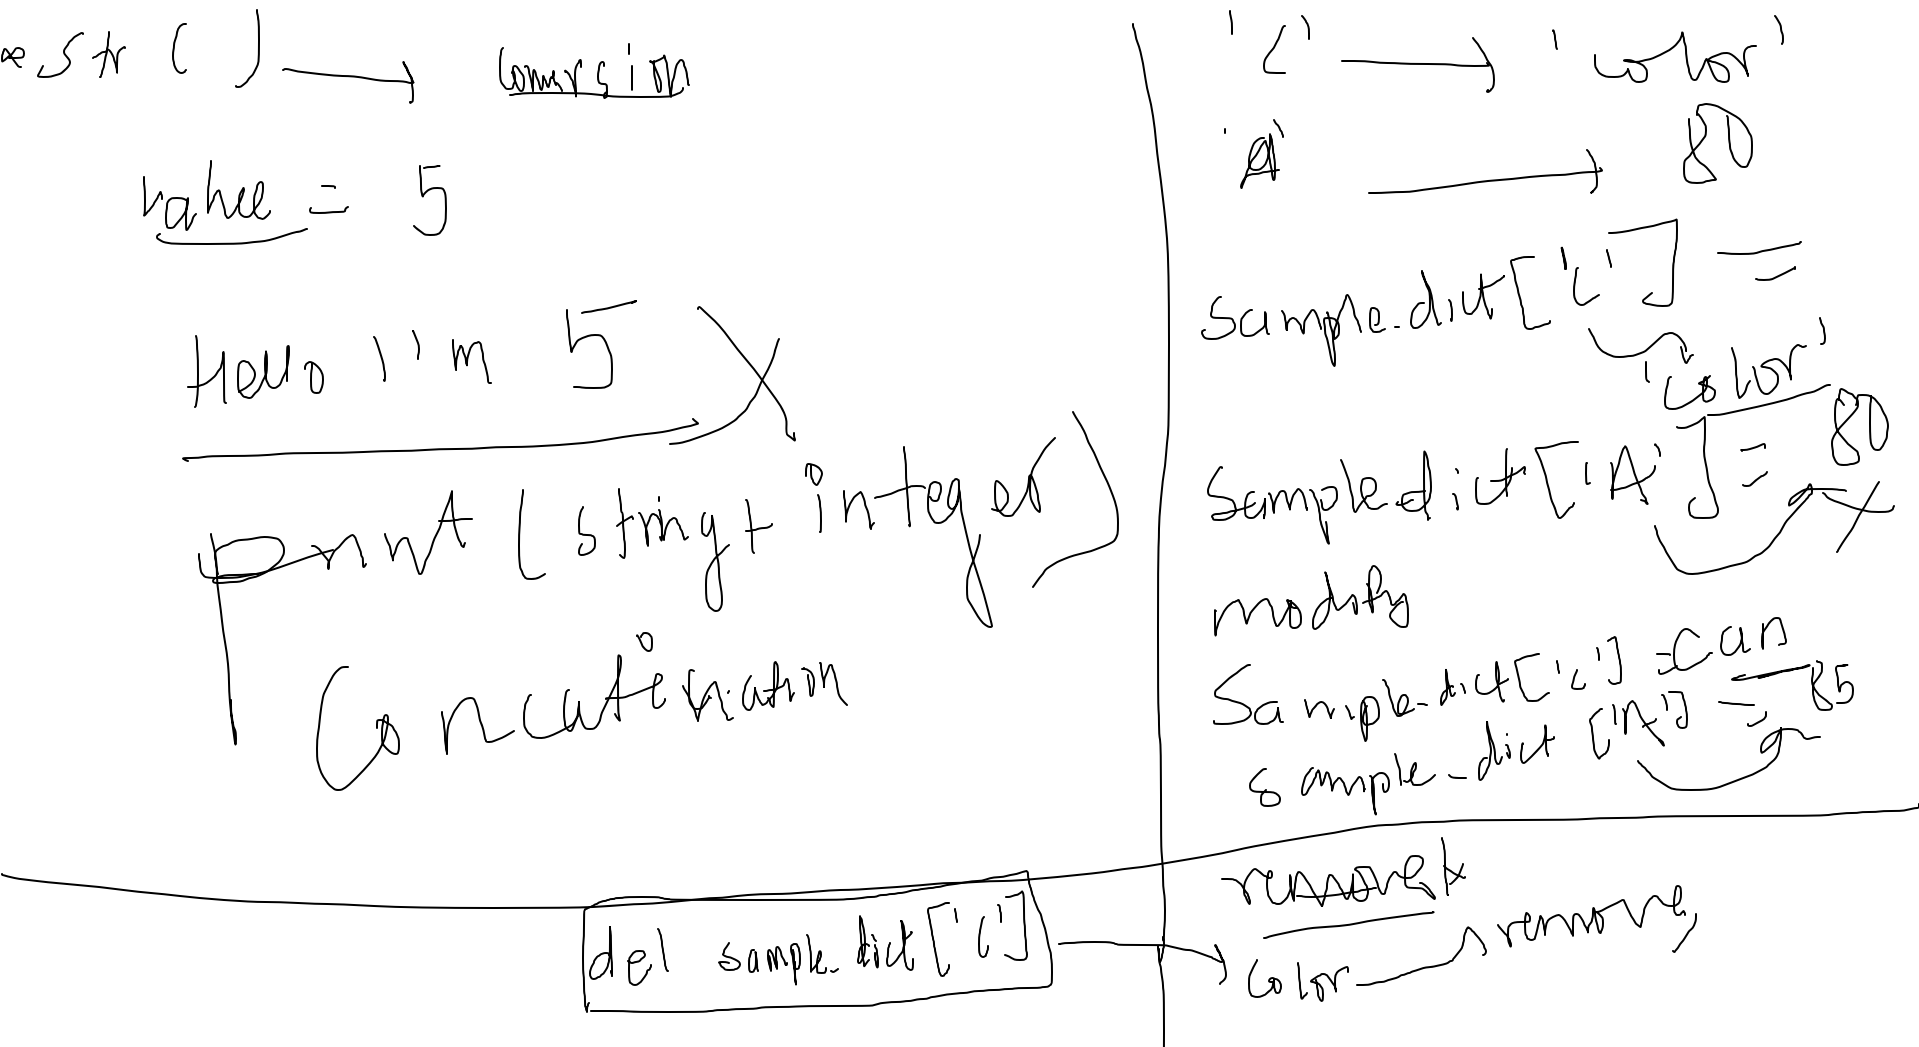 str ( ) → Conversion
value = 5
Hello I'm 5
print ( string + integer )
Concatenation
'C' → 'color'
'A' → 80
sample_dict['C'] =
'color'
sample_dict['A'] = 80
modify
sample_dict['C'] = can
sample_dict['A'] = 85
remove
del sample_dict['C'] → color → remove